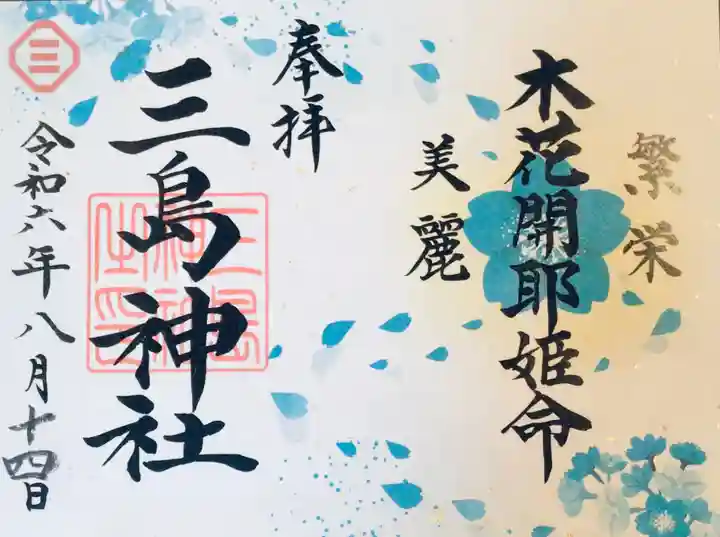 繁栄
木花開耶姫命
美麗
奉拝
三島神社
三島神社之印
三
令和六年八月十四日